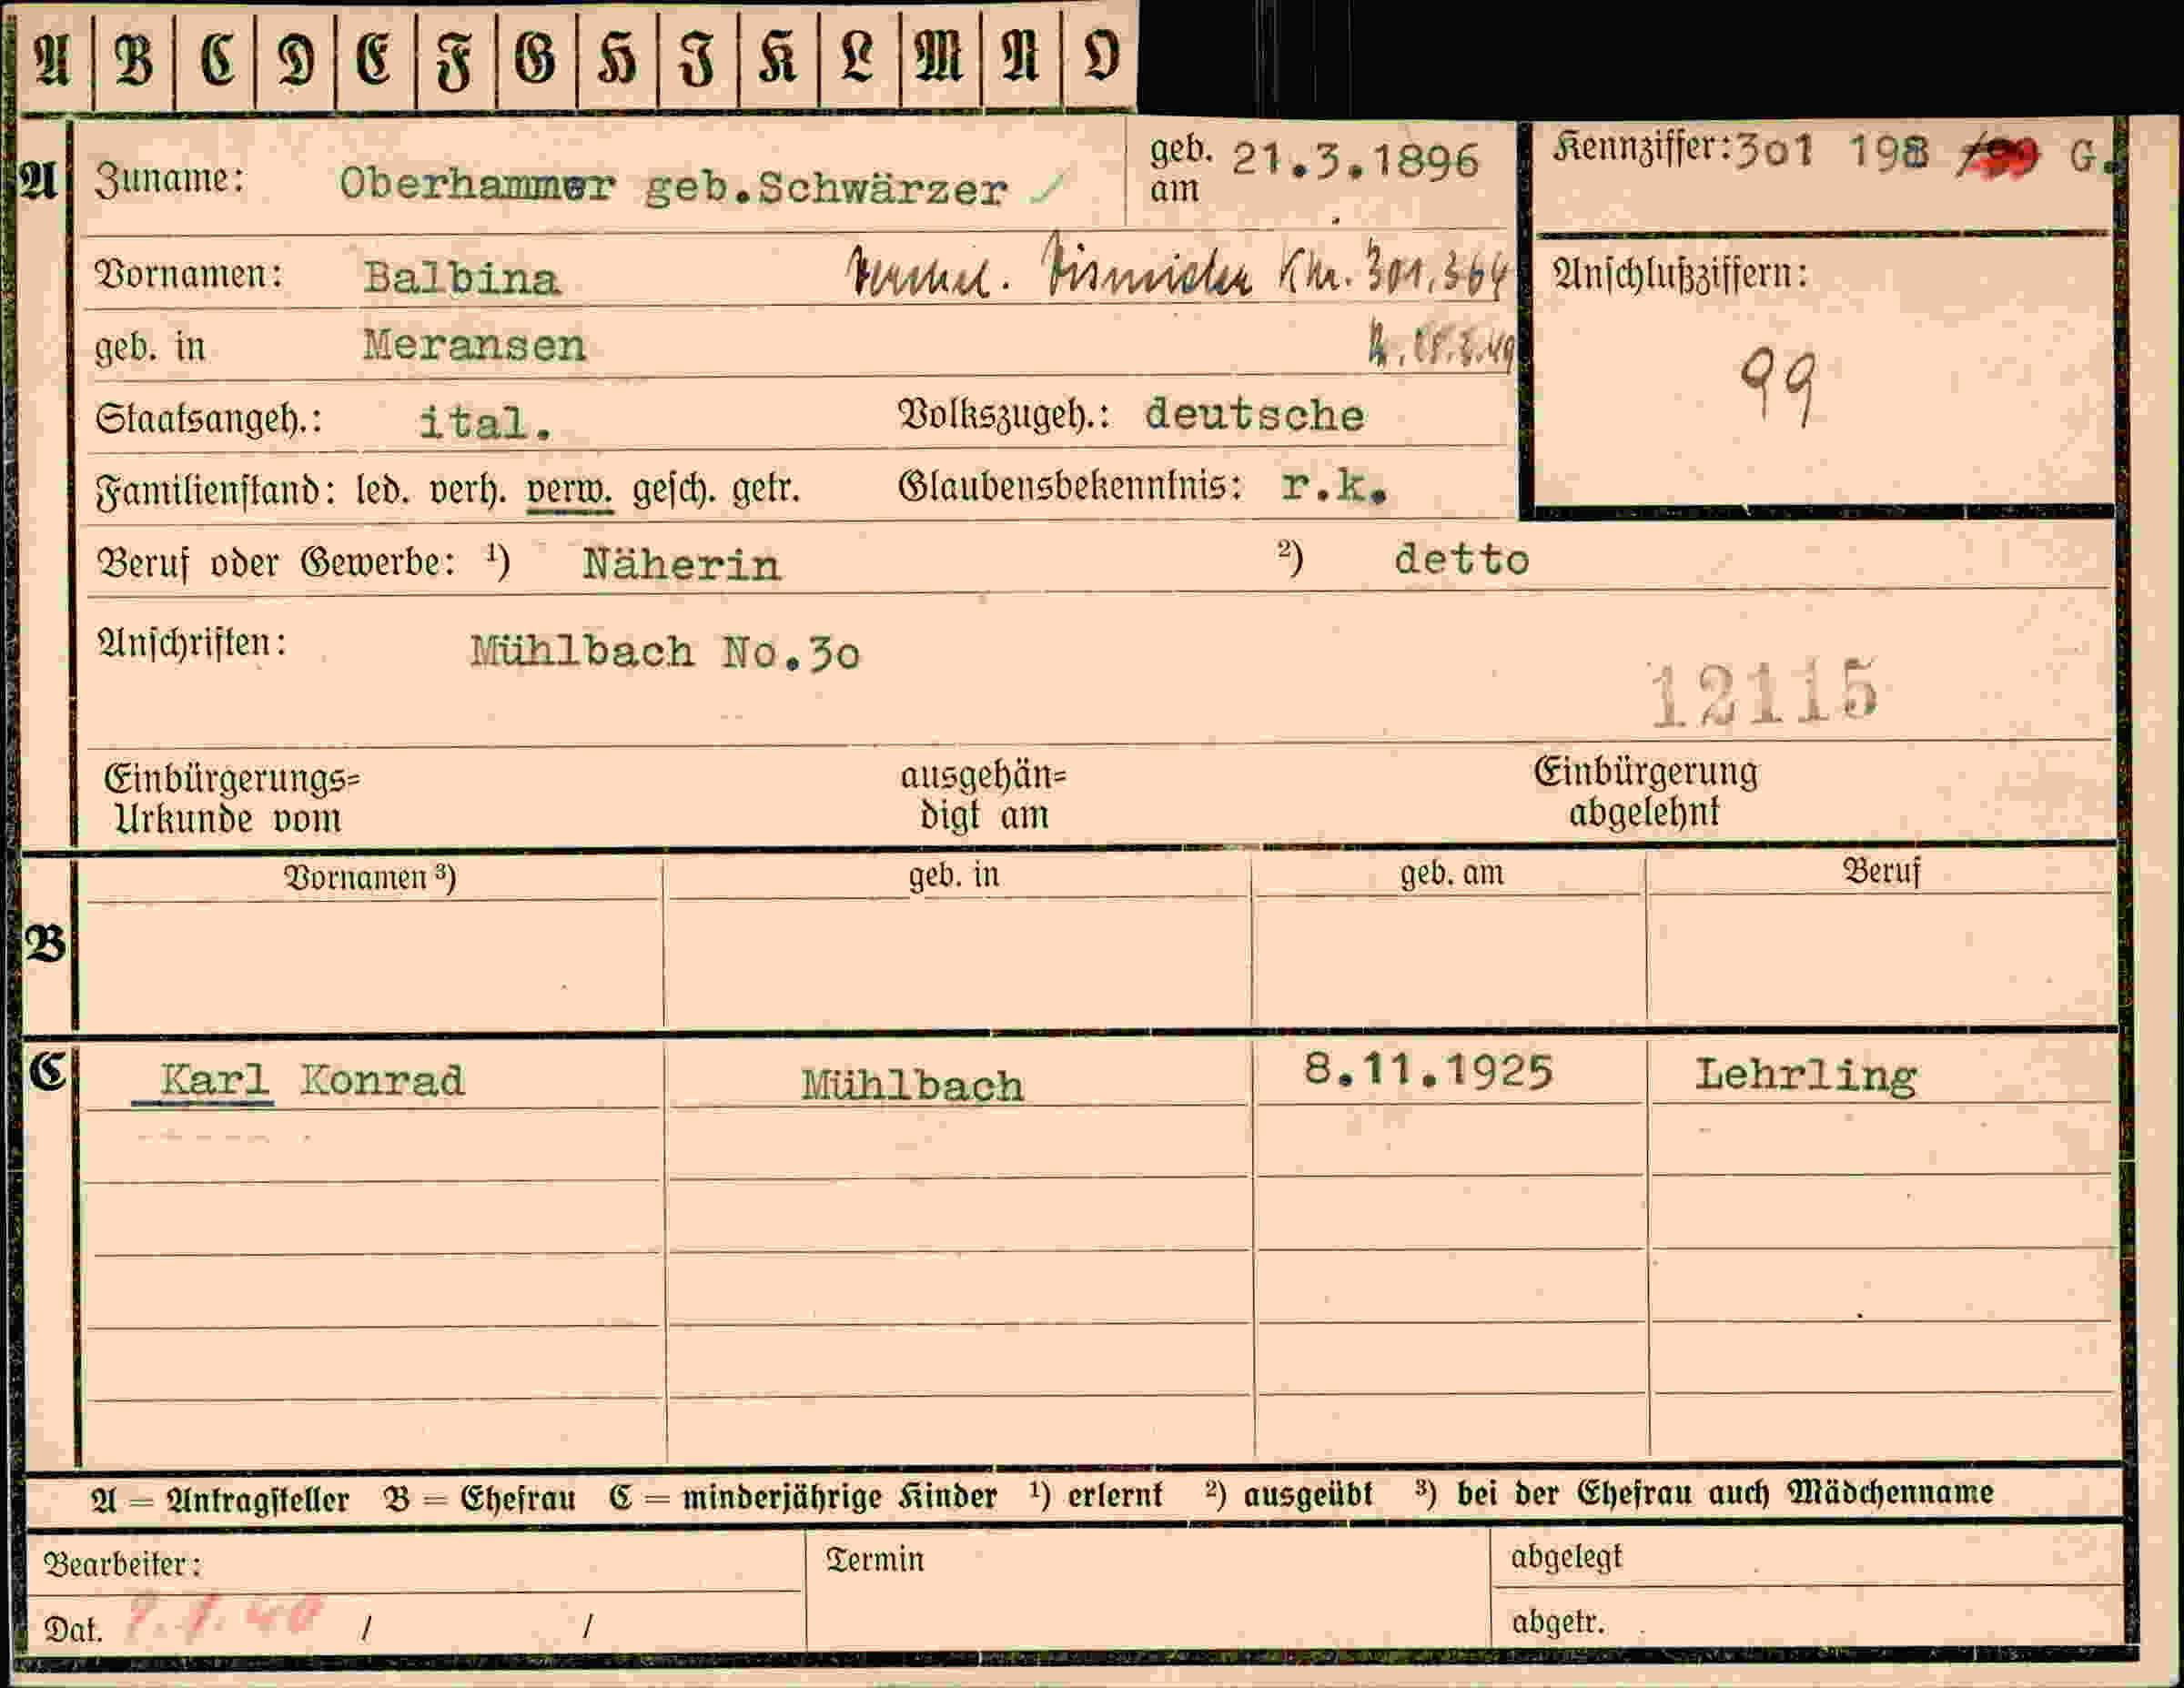 A B C D E F G H I K L M N O
A Zuname: Oberhammer geb.Schwärzer geb. am 21.3.1896 Kennziffer: 301 198 /99 G.
Vornamen: Balbina Knr. 301.364 Anschlußziffern:
geb. in Meransen
99
Staatsangeh.: ital. Volkszugeh.: deutsche
Familienstand: led. verh. verw. gesch. getr. Glaubensbekenntnis: r.k.
Beruf oder Gewerbe: ¹) Näherin ²) detto
Anschriften: Mühlbach No.30
12115
Einbürgerungs= ausgehän= Einbürgerung
Urkunde vom digt am abgelehnt
B Vornamen ³) geb. in geb. am Beruf
C Karl Konrad Mühlbach 8.11.1925 Lehrling
A = Antragsteller B = Ehefrau C = minderjährige Kinder ¹) erlernt ²) ausgeübt ³) bei der Ehefrau auch Mädchenname
Bearbeiter: Termin abgelegt
Dat. / / abgetr.